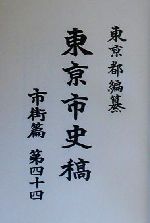 東京都編纂
東京市史稿
市街篇 第四十四